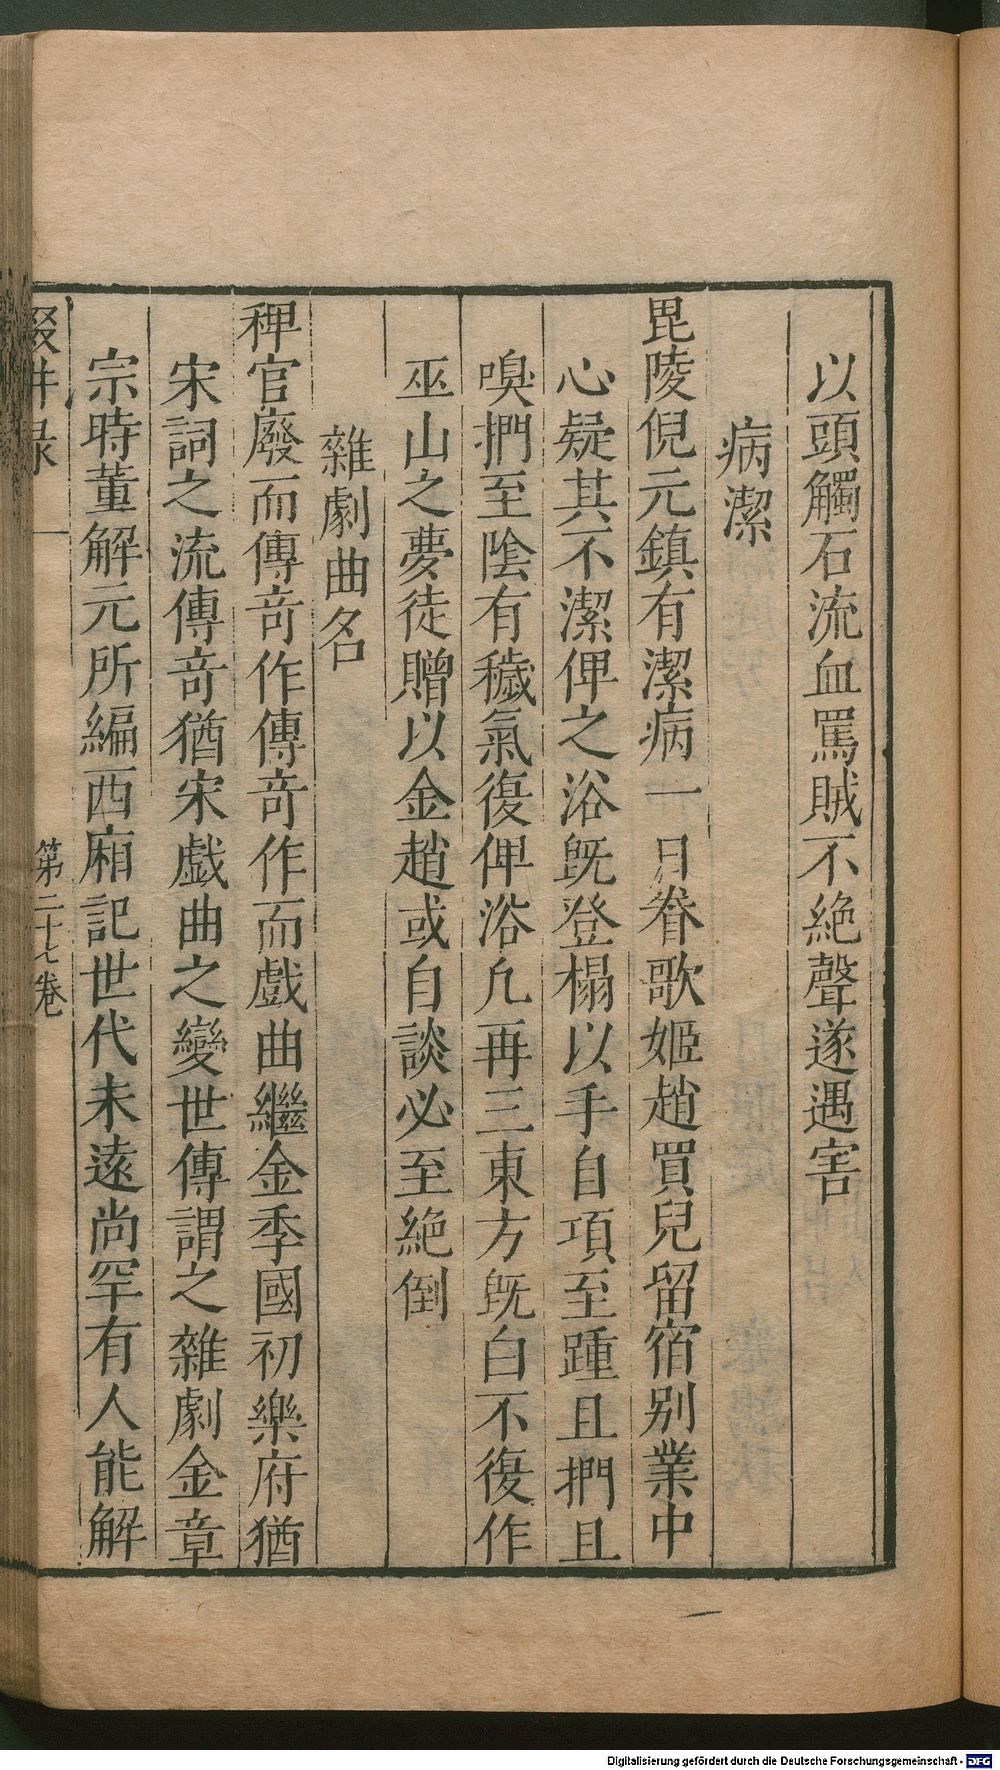 以頭觸石流血罵賊不絶聲遂遇害
病潔
毘陵倪元鎮有潔病一日眷歌姬趙買兒留宿别業中
心疑其不潔俾之浴既登榻以手自項至踵且捫且
嗅捫至陰有穢氣復俾浴凢再三東方既白不復作
巫山之夢徒贈以金趙或自談必至絶倒
雜劇曲名
稗官廢而傳竒作傳竒作而戲曲繼金季國初樂府猶
宋詞之流傳竒猶宋戯曲之變世傳謂之雜劇金章
宗時董解元所編西廂記世代未遠尚罕有人能解
第二十七卷
Digitalisierung gefördert durch die Deutsche Forschungsgemeinschaft - DFG